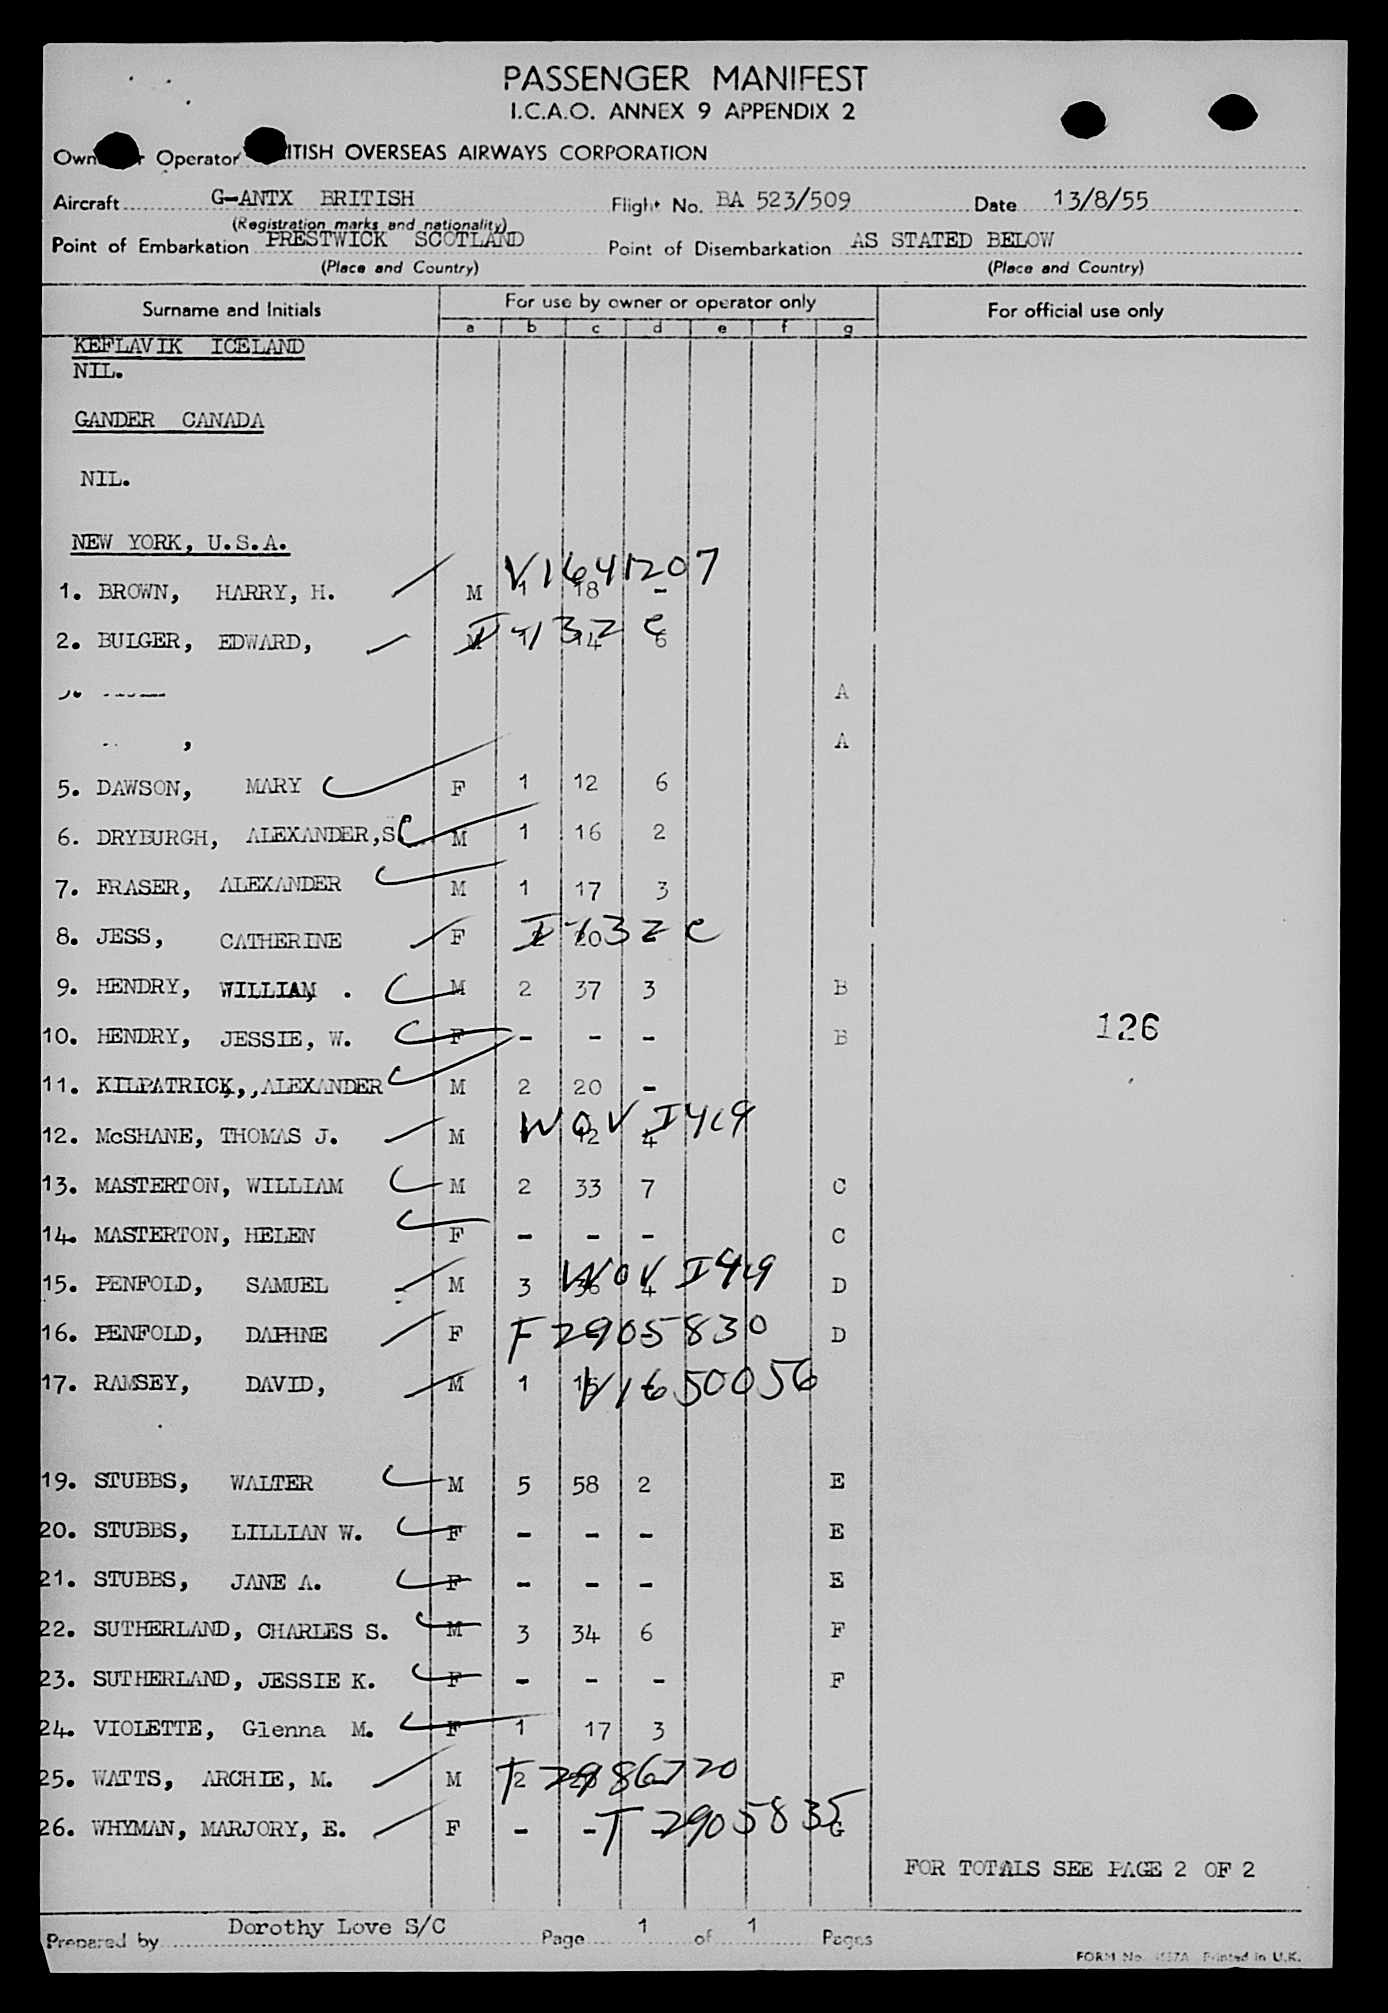 PASSENGER MANIFEST
I.C.A.O. ANNEX 9 APPENDIX 2
Operator ITISH OVERSEAS AIRWAYS CORPORATION
Aircraft G-ANTX BRITISH Flight No. BA 523/509 Date 13/8/55
(Registration marks and nationality)
Point of Embarkation PRESTWICK SCOTLAND Point of Disembarkation AS STATED BELOW
(Place and Country) (Place and Country)
Surname and Initials For use by owner or operator only For official use only
a b c d e f g
KEFLAVIK ICELAND
NIL.
GANDER CANADA
NIL.
NEW YORK, U.S.A.
V1641207
1. BROWN, HARRY, H. M 1 18 -
2. BULGER, EDWARD, M 14 6
A
A
5. DAWSON, MARY F 1 12 6
6. DRYBURGH, ALEXANDER,S. M 1 16 2
7. FRASER, ALEXANDER M 1 17 3
8. JESS, CATHERINE F
9. HENDRY, WILLIAM . M 2 37 3 B
10. HENDRY, JESSIE, W. F - - - B
126
11. KILPATRICK,,ALEXANDER M 2 20 -
12. McSHANE, THOMAS J. M 12 4
13. MASTERTON, WILLIAM M 2 33 7 C
14. MASTERTON, HELEN F - - - C
15. PENFOLD, SAMUEL M 3 36 4 D
16. PENFOLD, DAPHNE F 2905830 D
17. RAMSEY, DAVID, M 1 V1650056
19. STUBBS, WALTER M 5 58 2 E
20. STUBBS, LILLIAN W. F - - - E
21. STUBBS, JANE A. F - - - E
22. SUTHERLAND, CHARLES S. M 3 34 6 F
23. SUTHERLAND, JESSIE K. F - - - F
24. VIOLETTE, Glenna M. F 1 17 3
25. WATTS, ARCHIE, M. M 2
26. WHYMAN, MARJORY, E. F - - T 2905835 G
FOR TOTALS SEE PAGE 2 OF 2
Prepared by Dorothy Love S/C Page 1 of 1 Pages
FORM No. Printed in U.K.